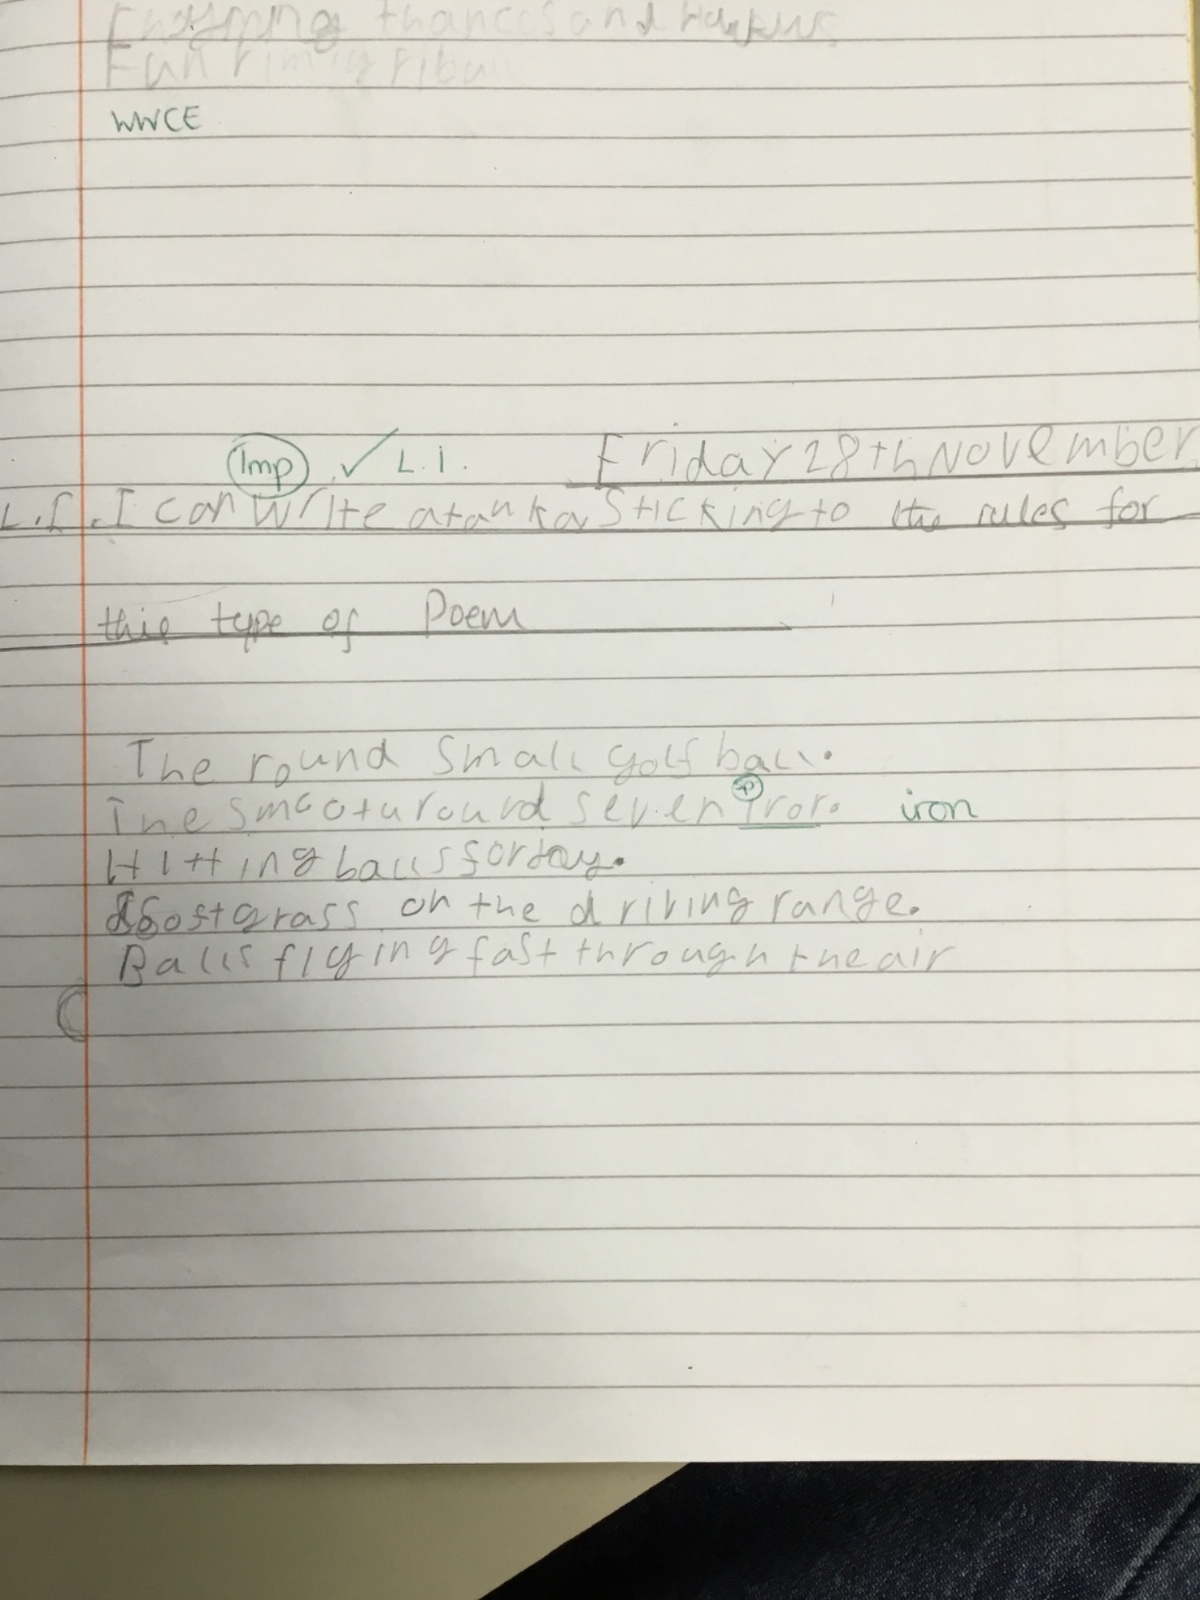 thancas and Haikus
Fun
WWCE
Imp ✓ L.I.
Friday 28th November
L.I. I can write a tanka Sticking to the rules for
this type of Poem
The round Small golf ball.
The smooth round seven Iron. sp iron
Hitting balls for joy.
Soft grass on the driving range.
Balls flying fast through the air